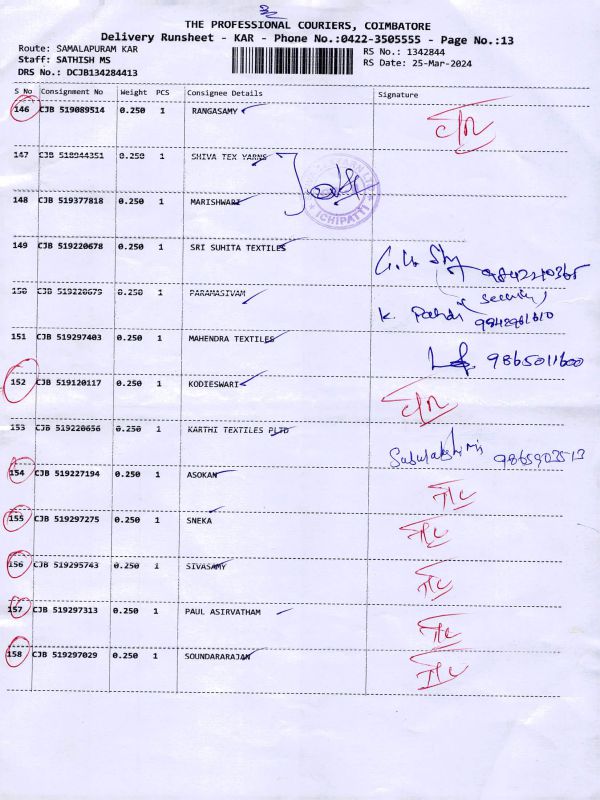 THE PROFESSIONAL COURIERS, COIMBATORE
Delivery Runsheet - KAR - Phone No.:0422-3505555 - Page No.:13
Route: SAMALAPURAM KAR RS No.: 1342844
Staff: SATHISH MS RS Date: 25-Mar-2024
DRS No.: DCJB134284413
S No Consignment No Weight PCS Consignee Details Signature
146 CJB 519089514 0.250 1 RANGASAMY
147 CJB 518944351 0.250 1 SHIVA TEX YARNS
ICHIPATTI
148 CJB 519377818 0.250 1 MARISHWARI
149 CJB 519220678 0.250 1 SRI SUHITA TEXTILES
150 CJB 519220679 0.250 1 PARAMASIVAM
(Security)
K.
151 CJB 519297403 0.250 1 MAHENDRA TEXTILES
9865011600
152 CJB 519120117 0.250 1 KODIESWARI
153 CJB 519220656 0.250 1 KARTHI TEXTILES PLTD
154 CJB 519227194 0.250 1 ASOKAN
155 CJB 519297275 0.250 1 SNEKA
156 CJB 519295743 0.250 1 SIVASAMY
157 CJB 519297313 0.250 1 PAUL ASIRVATHAM
158 CJB 519297029 0.250 1 SOUNDARARAJAN